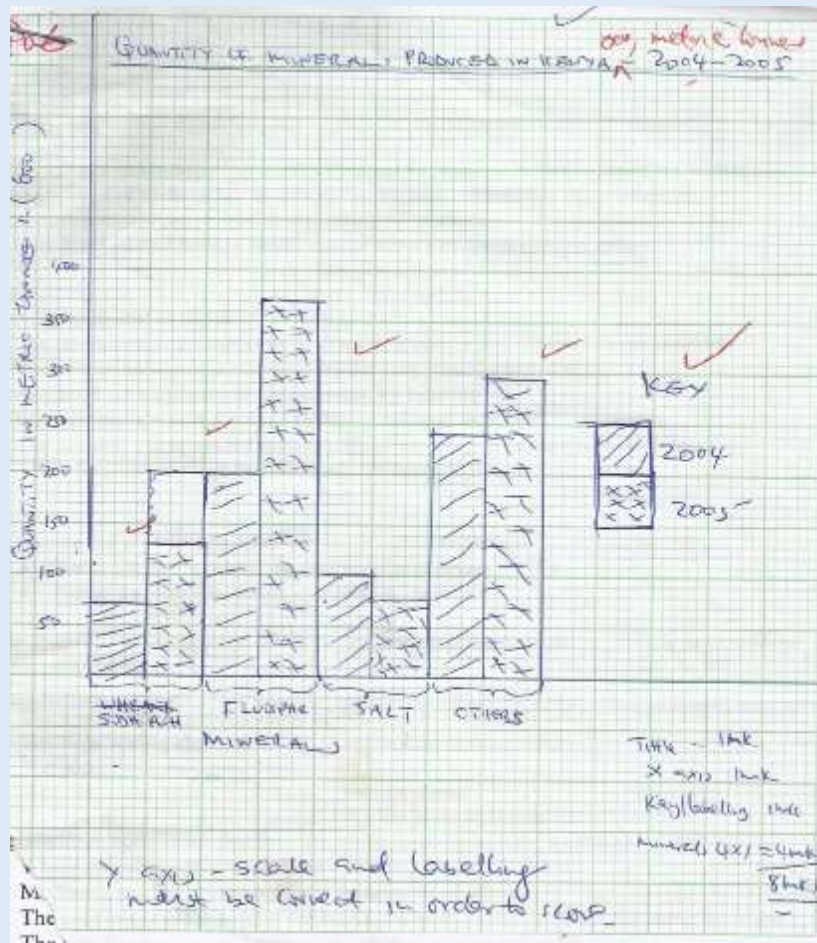 QUANTITY OF MINERALS PRODUCED IN KENYA - 2004-2005
000, metric tonnes
QUANTITY IN METRIC (000)
400
350
300
250
200
150
100
50
KEY
2004
2005
SODA ASH
FLUOSPAR
SALT
OTHERS
MINERALS
Title - 1mk
X axis 1mk
Key/labelling 1mk
minerals 4x1 = 4mk
8mk
Y axis - scale and labelling
must be correct in order to score
M
The
The